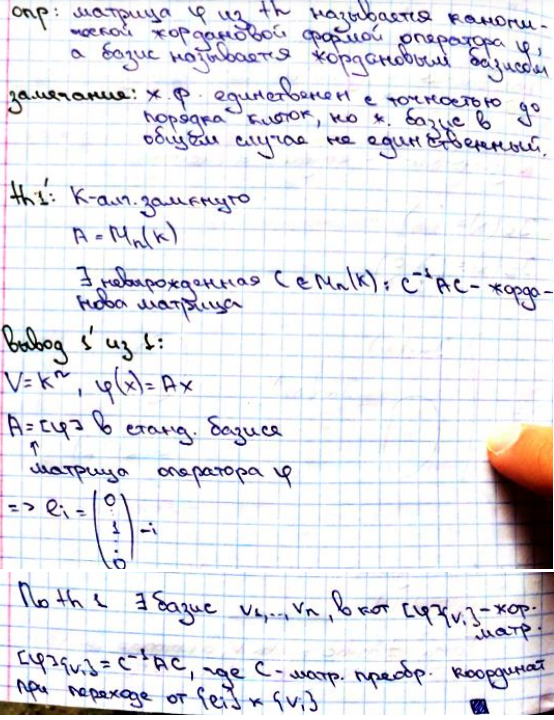 опр: матрица φ из th называется канони-
ческой жордановой формой оператора φ,
а базис называется жордановым базисом
замечание: ж.ф. единственен с точностью до
порядка клеток, но ж. базис в
общем случае не единственный.
th 1': K-алг. замкнуто
A = Mₙ(K)
∃ невырожденная C ∈ Mₙ(K): C⁻¹AC - жорда-
нова матрица
Вывод 1' из 1:
V = Kⁿ, φ(x) = Ax
A = [φ] в станд. базисе
↑
матрица оператора φ
=> eᵢ = (0 ⋮ 1 ⋮ 0) - i
По th 1 ∃ базис v₁,..,vₙ, в кот [φ]{vᵢ} - жор.
матр.
[φ]{vᵢ} = C⁻¹AC, где C - матр. преобр. координат
при переходе от {eᵢ} к {vᵢ}